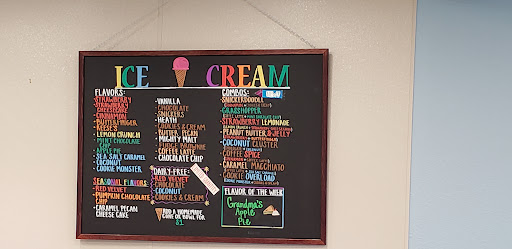 ICE CREAM
FLAVORS:
-STRAWBERRY
-STRAWBERRY
CHEESECAKE
-CINNAMON
-BUTTERFINGER
-REESE'S
-LEMON CRUNCH
-MINT CHOCOLATE
CHIP
-APPLE PIE
-SEA SALT CARAMEL
-COCONUT
-COOKIE MONSTER
SEASONAL FLAVORS:
-RED VELVET
-PUMPKIN CHOCOLATE
CHIP
-CARAMEL PECAN
CHEESE CAKE
-VANILLA
-CHOCOLATE
-SNICKERS
-HEATH
-COOKIES & CREAM
-BUTTER PECAN
-MIGHTY MALT
-FUDGE BROWNIE
-COFFEE LATTE
-CHOCOLATE CHIP
DAIRY-FREE:
-RED VELVET
-CHOCOLATE
-COCONUT
-COOKIES & CREAM
ADD A HOMEMADE
CONE OR BOWL FOR
$1
COMBOS:
-SNICKERDOODLE
-GRASSHOPPER
-STRAWBERRY LEMONADE
-PEANUT BUTTER & JELLY
-COCONUT CLUSTER
-COFFEE SPICE
-CARAMEL MACCHIATO
-COOKIE OVERLOAD
FLAVOR OF THE WEEK
Grandma's
Apple
Pie